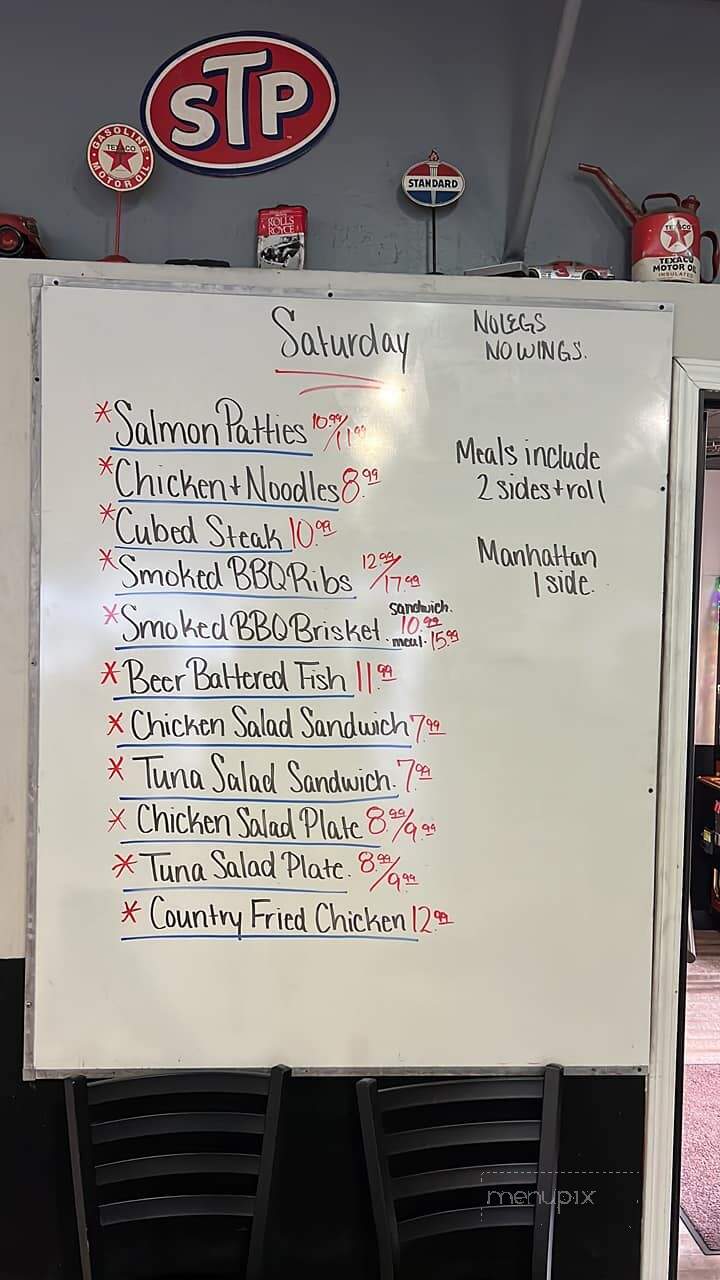 STP
GASOLINE
TEXACO
MOTOR OIL
STANDARD
ROLLS
ROYCE
TEXACO
MOTOR OIL
INSULATED
Saturday
NO LEGS
NO WINGS.
* Salmon Patties 10.99/11.99
* Chicken + Noodles 8.99
* Cubed Steak 10.99
* Smoked BBQ Ribs 12.99/17.99
* Smoked BBQ Brisket. sandwich. 10.99
meal. 15.99
* Beer Battered Fish 11.99
* Chicken Salad Sandwich 7.99
* Tuna Salad Sandwich. 7.99
* Chicken Salad Plate 8.99/9.99
* Tuna Salad Plate. 8.99/9.99
* Country Fried Chicken 12.99
Meals include
2 sides + roll
Manhattan
1 side.
menupix